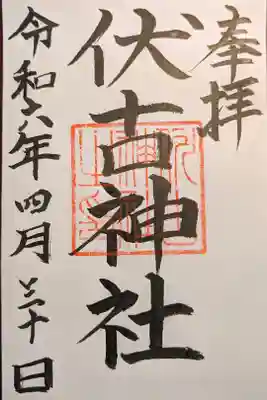 奉拝
伏古神社
令和六年四月二十日